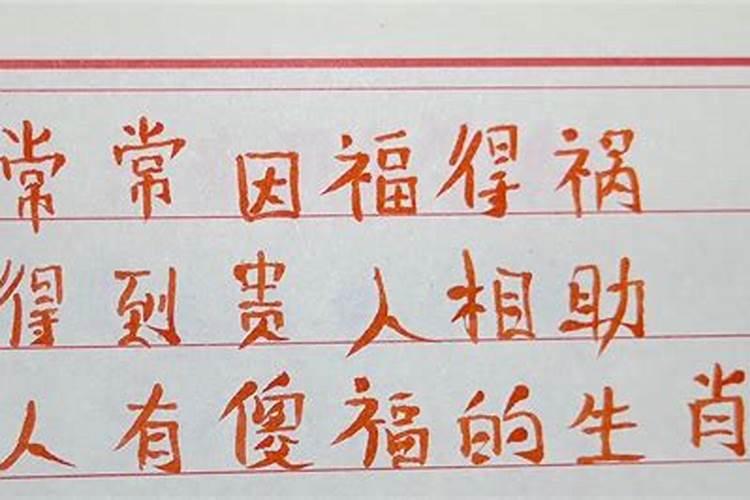 常常因福得祸
得到贵人相助
人有傻福的生肖